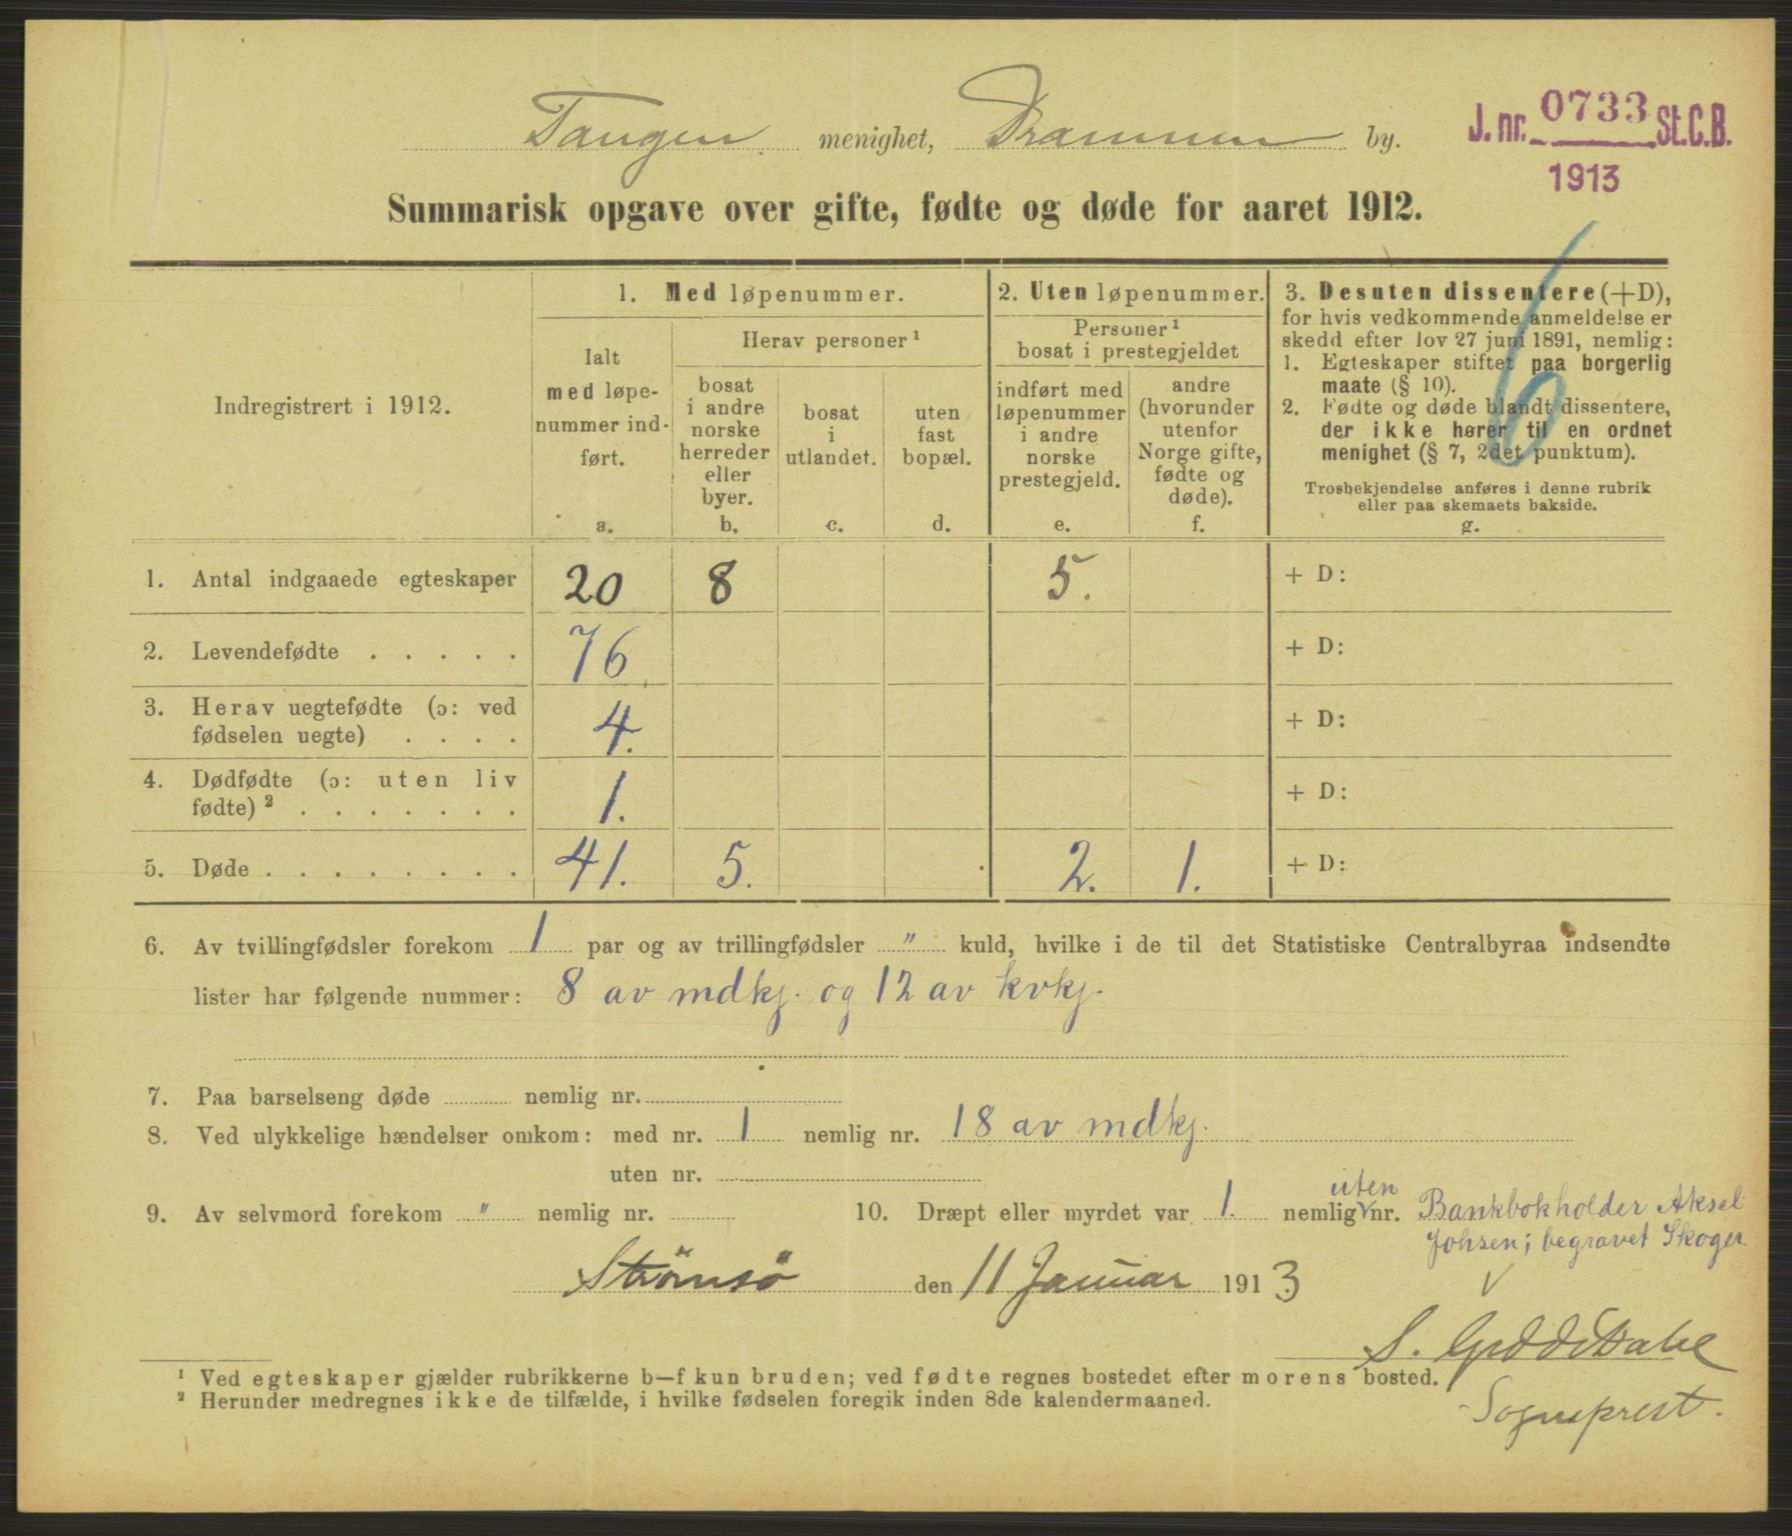 Tangen menighet, Drammen by.
J. nr. 0733 St.C.B.
1913
Summarisk opgave over gifte, fødte og døde for aaret 1912.
6
Indregistrert i 1912.
1. Med løpenummer.
Ialt
med løpe-
nummer ind-
ført.
a.
Herav personer ¹
bosat
i andre
norske
herreder
eller
byer.
b.
bosat
i
utlandet.
c.
uten
fast
bopæl.
d.
2. Uten løpenummer.
Personer ¹
bosat i prestegjeldet
indført med
løpenummer
i andre
norske
prestegjeld.
e.
andre
(hvorunder
utenfor
Norge gifte,
fødte og
døde).
f.
3. Desuten dissentere (+D),
for hvis vedkommende anmeldelse er
skedd efter lov 27 juni 1891, nemlig:
1. Egteskaper stiftet paa borgerlig
maate (§ 10).
2. Fødte og døde blandt dissentere,
der ikke hører til en ordnet
menighet (§ 7, 2det punktum).
Trosbekjendelse anføres i denne rubrik
eller paa skemaets bakside.
g.
1. Antal indgaaede egteskaper 20 8 5. + D:
2. Levendefødte . . . . . 76 + D:
3. Herav uegtefødte (ɔ: ved
fødselen uegte) . . . . 4. + D:
4. Dødfødte (ɔ: uten liv
fødte) ² . . . . . . . 1. + D:
5. Døde . . . . . . . . . 41. 5. 2. 1. + D:
6. Av tvillingfødsler forekom 1 par og av trillingfødsler " kuld, hvilke i de til det Statistiske Centralbyraa indsendte
lister har følgende nummer: 8 av mdkj. og 12 av kvkj.
7. Paa barselseng døde nemlig nr.
8. Ved ulykkelige hændelser omkom: med nr. 1 nemlig nr. 18 av mdkj.
uten nr.
9. Av selvmord forekom " nemlig nr. 10. Dræpt eller myrdet var 1. nemlig uten nr. Bankbokholder Aksel
Johsen; begravet Skoger
Strömsö den 11 Januar 1913
S.
Sogneprest.
¹ Ved egteskaper gjælder rubrikkerne b—f kun bruden; ved fødte regnes bostedet efter morens bosted.
² Herunder medregnes ikke de tilfælde, i hvilke fødselen foregik inden 8de kalendermaaned.